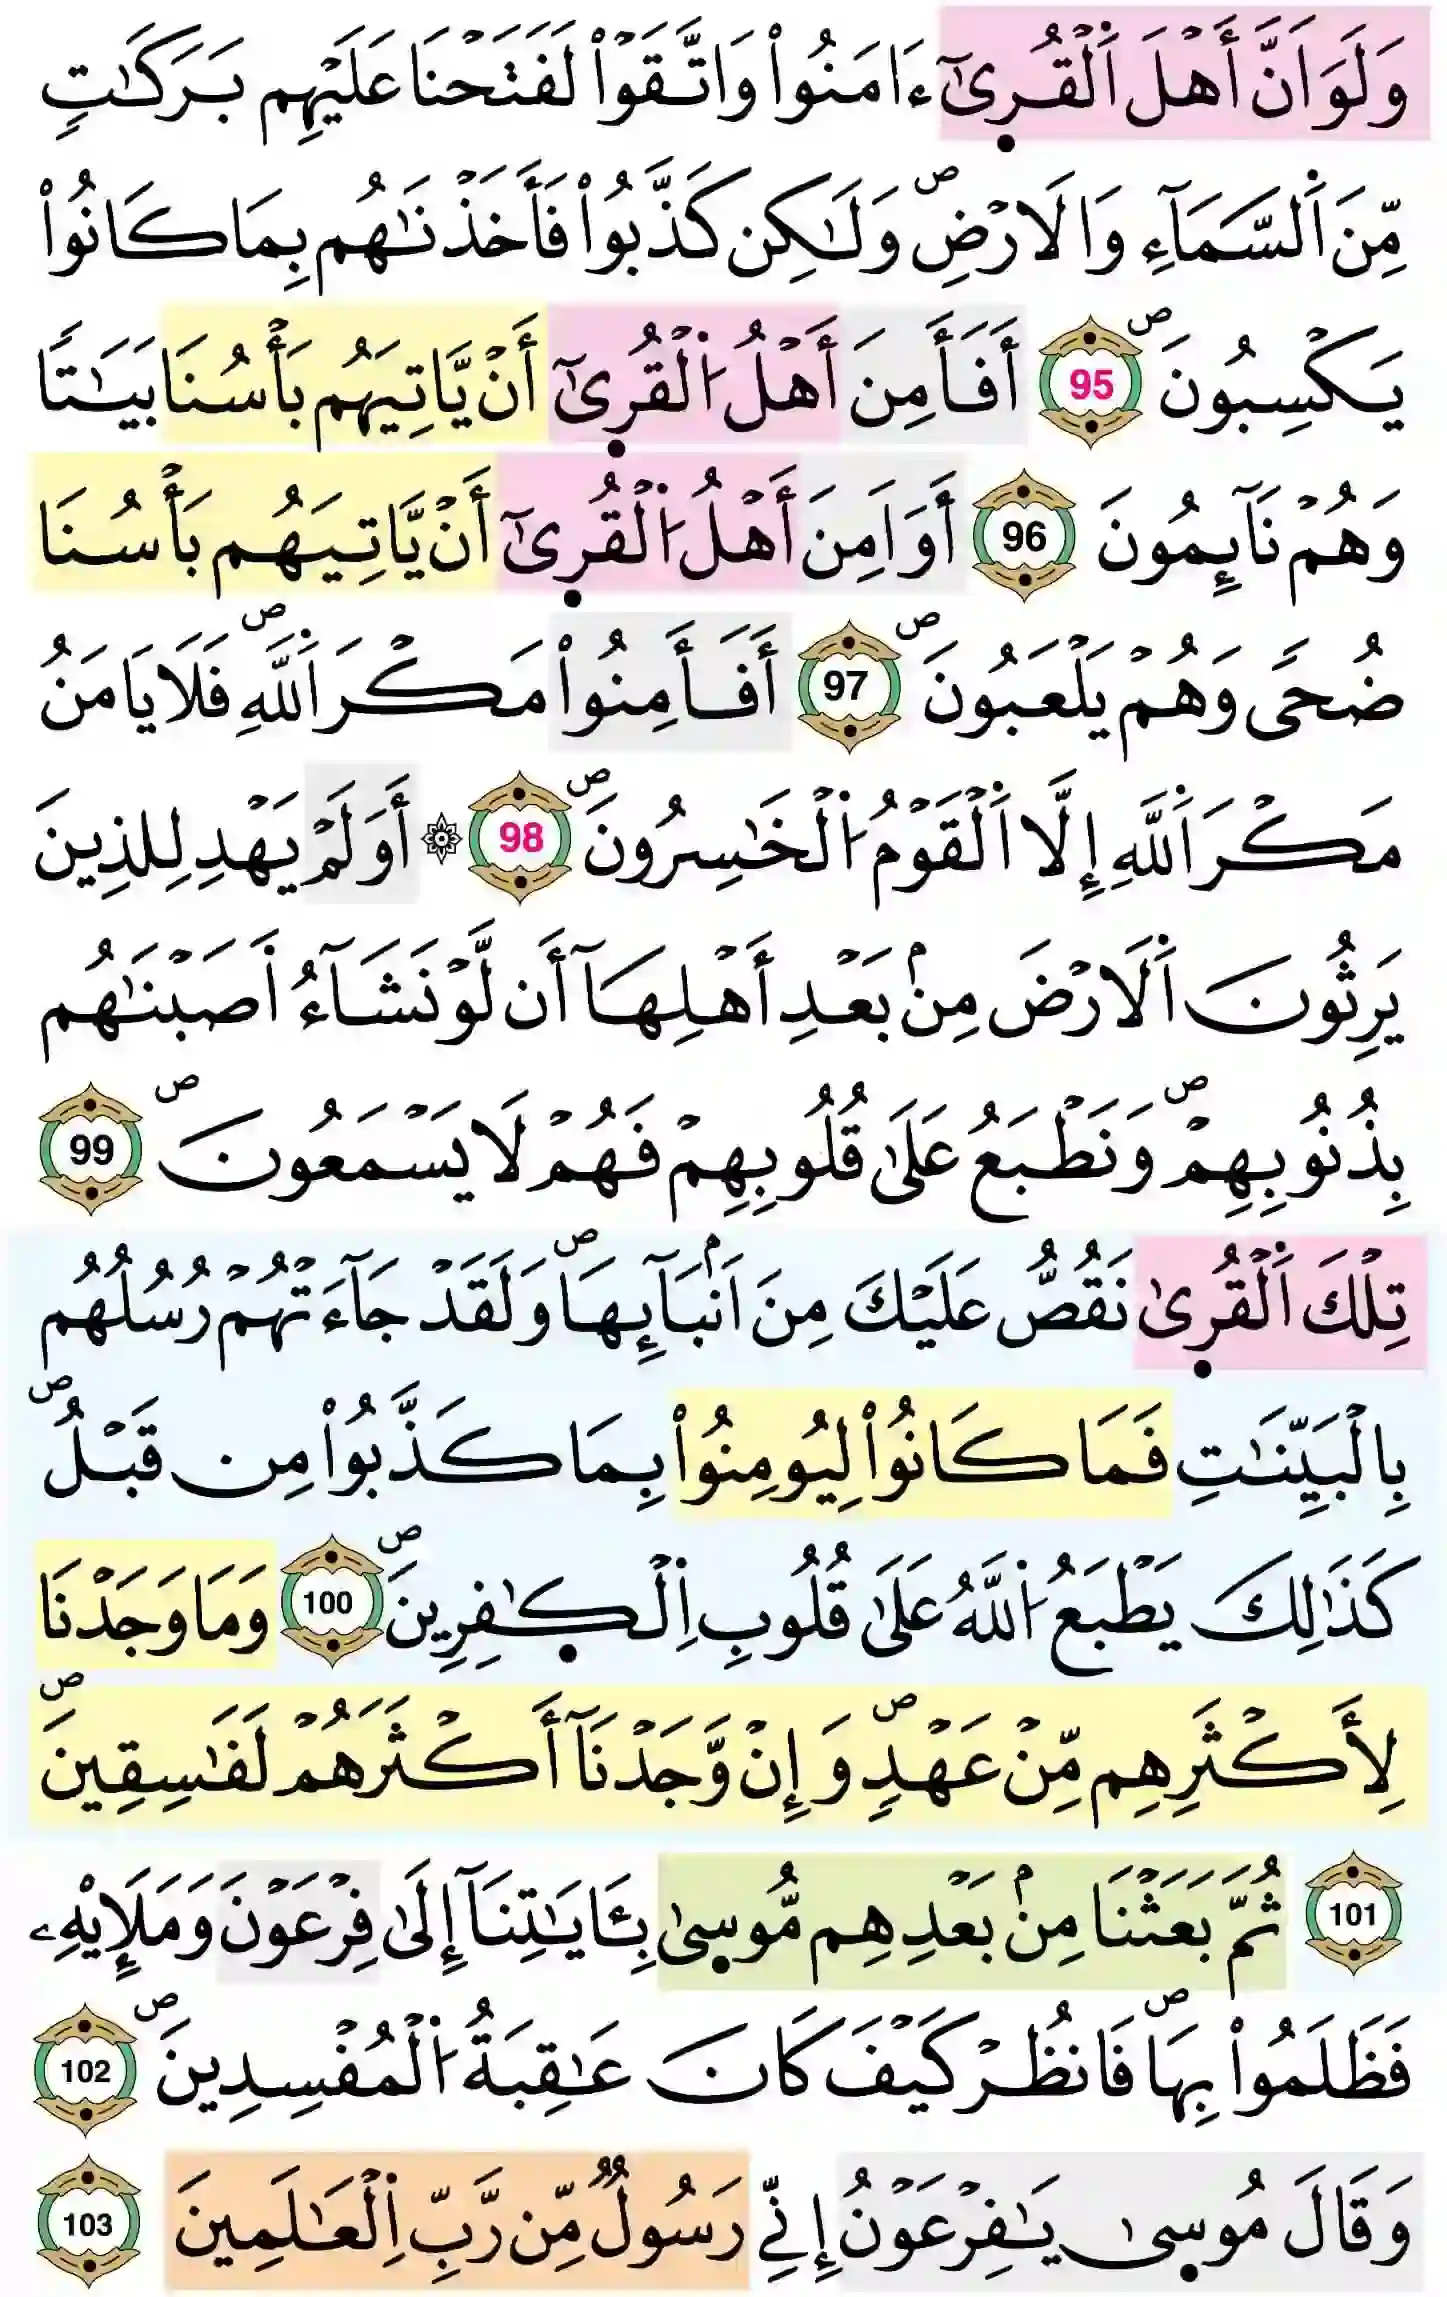 وَلَوَ اَنَّ أَهْلَ اَ۬لْقُر۪ىٰٓ ءَامَنُواْ وَاتَّقَوْاْ لَفَتَحْنَا عَلَيْهِم بَرَكَٰتٖ
مِّنَ اَ۬لسَّمَآءِ وَالَارْضِۖ وَلَٰكِن كَذَّبُواْ فَأَخَذْنَٰهُم بِمَا كَانُواْ
يَكْسِبُونَۖ 95 أَفَأَمِنَ أَهْلُ اُ۬لْقُر۪ىٰٓ أَنْ يَّاتِيَهُم بَأْسُنَا بَيَٰتاٗ
وَهُمْ نَآئِمُونَ 96 أَوَ اَمِنَ أَهْلُ اُ۬لْقُر۪ىٰٓ أَنْ يَّاتِيَهُم بَأْسُنَا
ضُحىٗ وَهُمْ يَلْعَبُونَۖ 97 أَفَأَمِنُواْ مَكْرَ اَ۬للَّهِۖ فَلَا يَامَنُ
مَكْرَ اَ۬للَّهِ إِلَّا اَ۬لْقَوْمُ اُ۬لْخَٰسِرُونَۖ 98 ۞ أَوَلَمْ يَهْدِ لِلذِينَ
يَرِثُونَ اَ۬لَارْضَ مِنۢ بَعْدِ أَهْلِهَآ أَن لَّوْ نَشَآءُ اَصَبْنَٰهُم
بِذُنُوبِهِمْۖ وَنَطْبَعُ عَلَىٰ قُلُوبِهِمْ فَهُمْ لَا يَسْمَعُونَۖ 99
تِلْكَ اَ۬لْقُر۪ىٰ نَقُصُّ عَلَيْكَ مِنَ اَنۢبَآئِهَاۖ وَلَقَدْ جَآءَتْهُمْ رُسُلُهُم
بِالْبَيِّنَٰتِ فَمَا كَانُواْ لِيُومِنُواْ بِمَا كَذَّبُواْ مِن قَبْلُۖ
كَذَٰلِكَ يَطْبَعُ اُ۬للَّهُ عَلَىٰ قُلُوبِ اِ۬لْكٰ۪فِرِينَۖ 100 وَمَا وَجَدْنَا
لِأَكْثَرِهِم مِّنْ عَهْدٖۖ وَإِنْ وَّجَدْنَآ أَكْثَرَهُمْ لَفَٰسِقِينَۖ
101 ثُمَّ بَعَثْنَا مِنۢ بَعْدِهِم مُّوس۪ىٰ بِـَٔايَٰتِنَآ إِلَىٰ فِرْعَوْنَ وَمَلَإِيْهِۦ
فَظَلَمُواْ بِهَاۖ فَانظُرْ كَيْفَ كَانَ عَٰقِبَةُ اُ۬لْمُفْسِدِينَۖ 102
وَقَالَ مُوس۪ىٰ يَٰفِرْعَوْنُ إِنِّے رَسُولٞ مِّن رَّبِّ اِ۬لْعَٰلَمِينَ 103